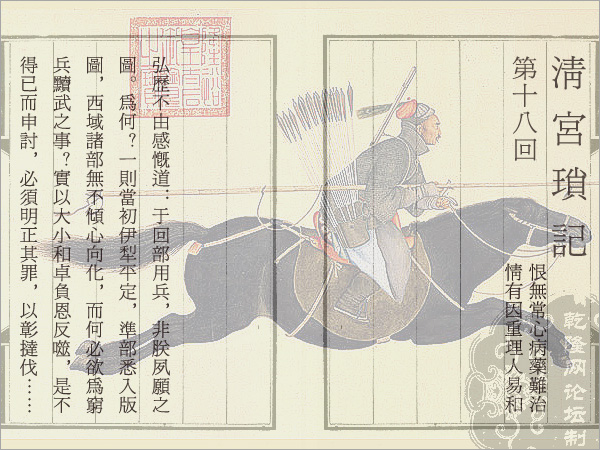 清宮瑣記
第十八回
恨無常心病藥難治
情有因重理人易和
弘歷不由感慨道：于回部用兵，非朕夙願之
圖。爲何？一則當初伊犁平定，準部悉入版
圖，西域諸部無不傾心向化，而何必欲爲窮
兵黷武之事？實以大小和卓負恩反噬，是不
得已而申討，必須明正其罪，以彰撻伐……
乾隆网论坛制